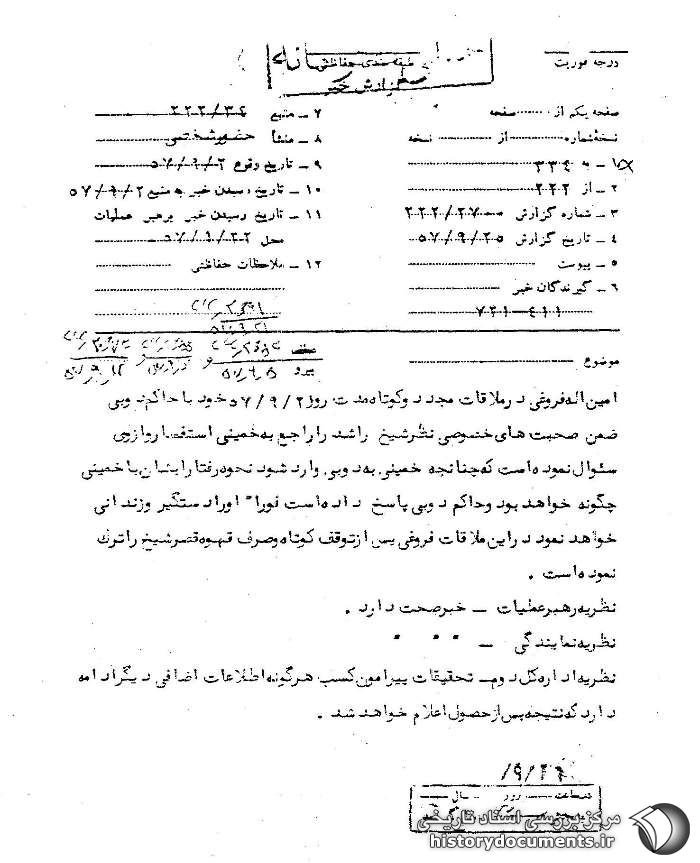 درجه فوریت
طبقه بندی حفاظتی
گزارش خبر
صفحه یکم از صفحه
نسخه شماره از نسخه
۱ - ۳۳۴
۲ - از ۲۲۲
۳ - شماره گزارش ۲۲۲/۲۷۰۰
۴ - تاریخ گزارش ۵۷/۹/۲۵
۵ - پیوست
۶ - گیرندگان خبر
۷۲۱-۴۱۱
۷ - منبع ۲۲۲/۳۴
۸ - منشأ حضور شخصی
۹ - تاریخ وقوع ۵۷/۹/۲
۱۰ - تاریخ رسیدن خبر به منبع ۵۷/۹/۲
۱۱ - تاریخ رسیدن خبر برهبر عملیات
محل ۵۷/۹/۲۲
۱۲ - ملاحظات حفاظتی
موضوع
امین اله فروغی در ملاقات مجدد و کوتاه مدت روز ۵۷/۹/۲ خود با حاکم دوبی
ضمن صحبت های خصوصی نظر شیخ راشد را راجع به خمینی استفسار و از وی
سئوال نموده است که چنانچه خمینی به دوبی وارد شود نحوه رفتار ایشان با خمینی
چگونه خواهد بود و حاکم دوبی پاسخ داده است فوراً او را دستگیر و زندانی
خواهد نمود در این ملاقات فروغی پس از توقف کوتاه و صرف قهوه قصر شیخ را ترک
نموده است .
نظریه رهبر عملیات - خبر صحت دارد .
نظریه نمایندگی - " " "
نظریه اداره کل دوم - تحقیقات پیرامون کسب هرگونه اطلاعات اضافی دیگر ادامه
دارد که نتیجه پس از حصول اعلام خواهد شد .
/۹/۲۶
ساعت روز سال
مرکز بررسی اسناد تاریخی
historydocuments.ir